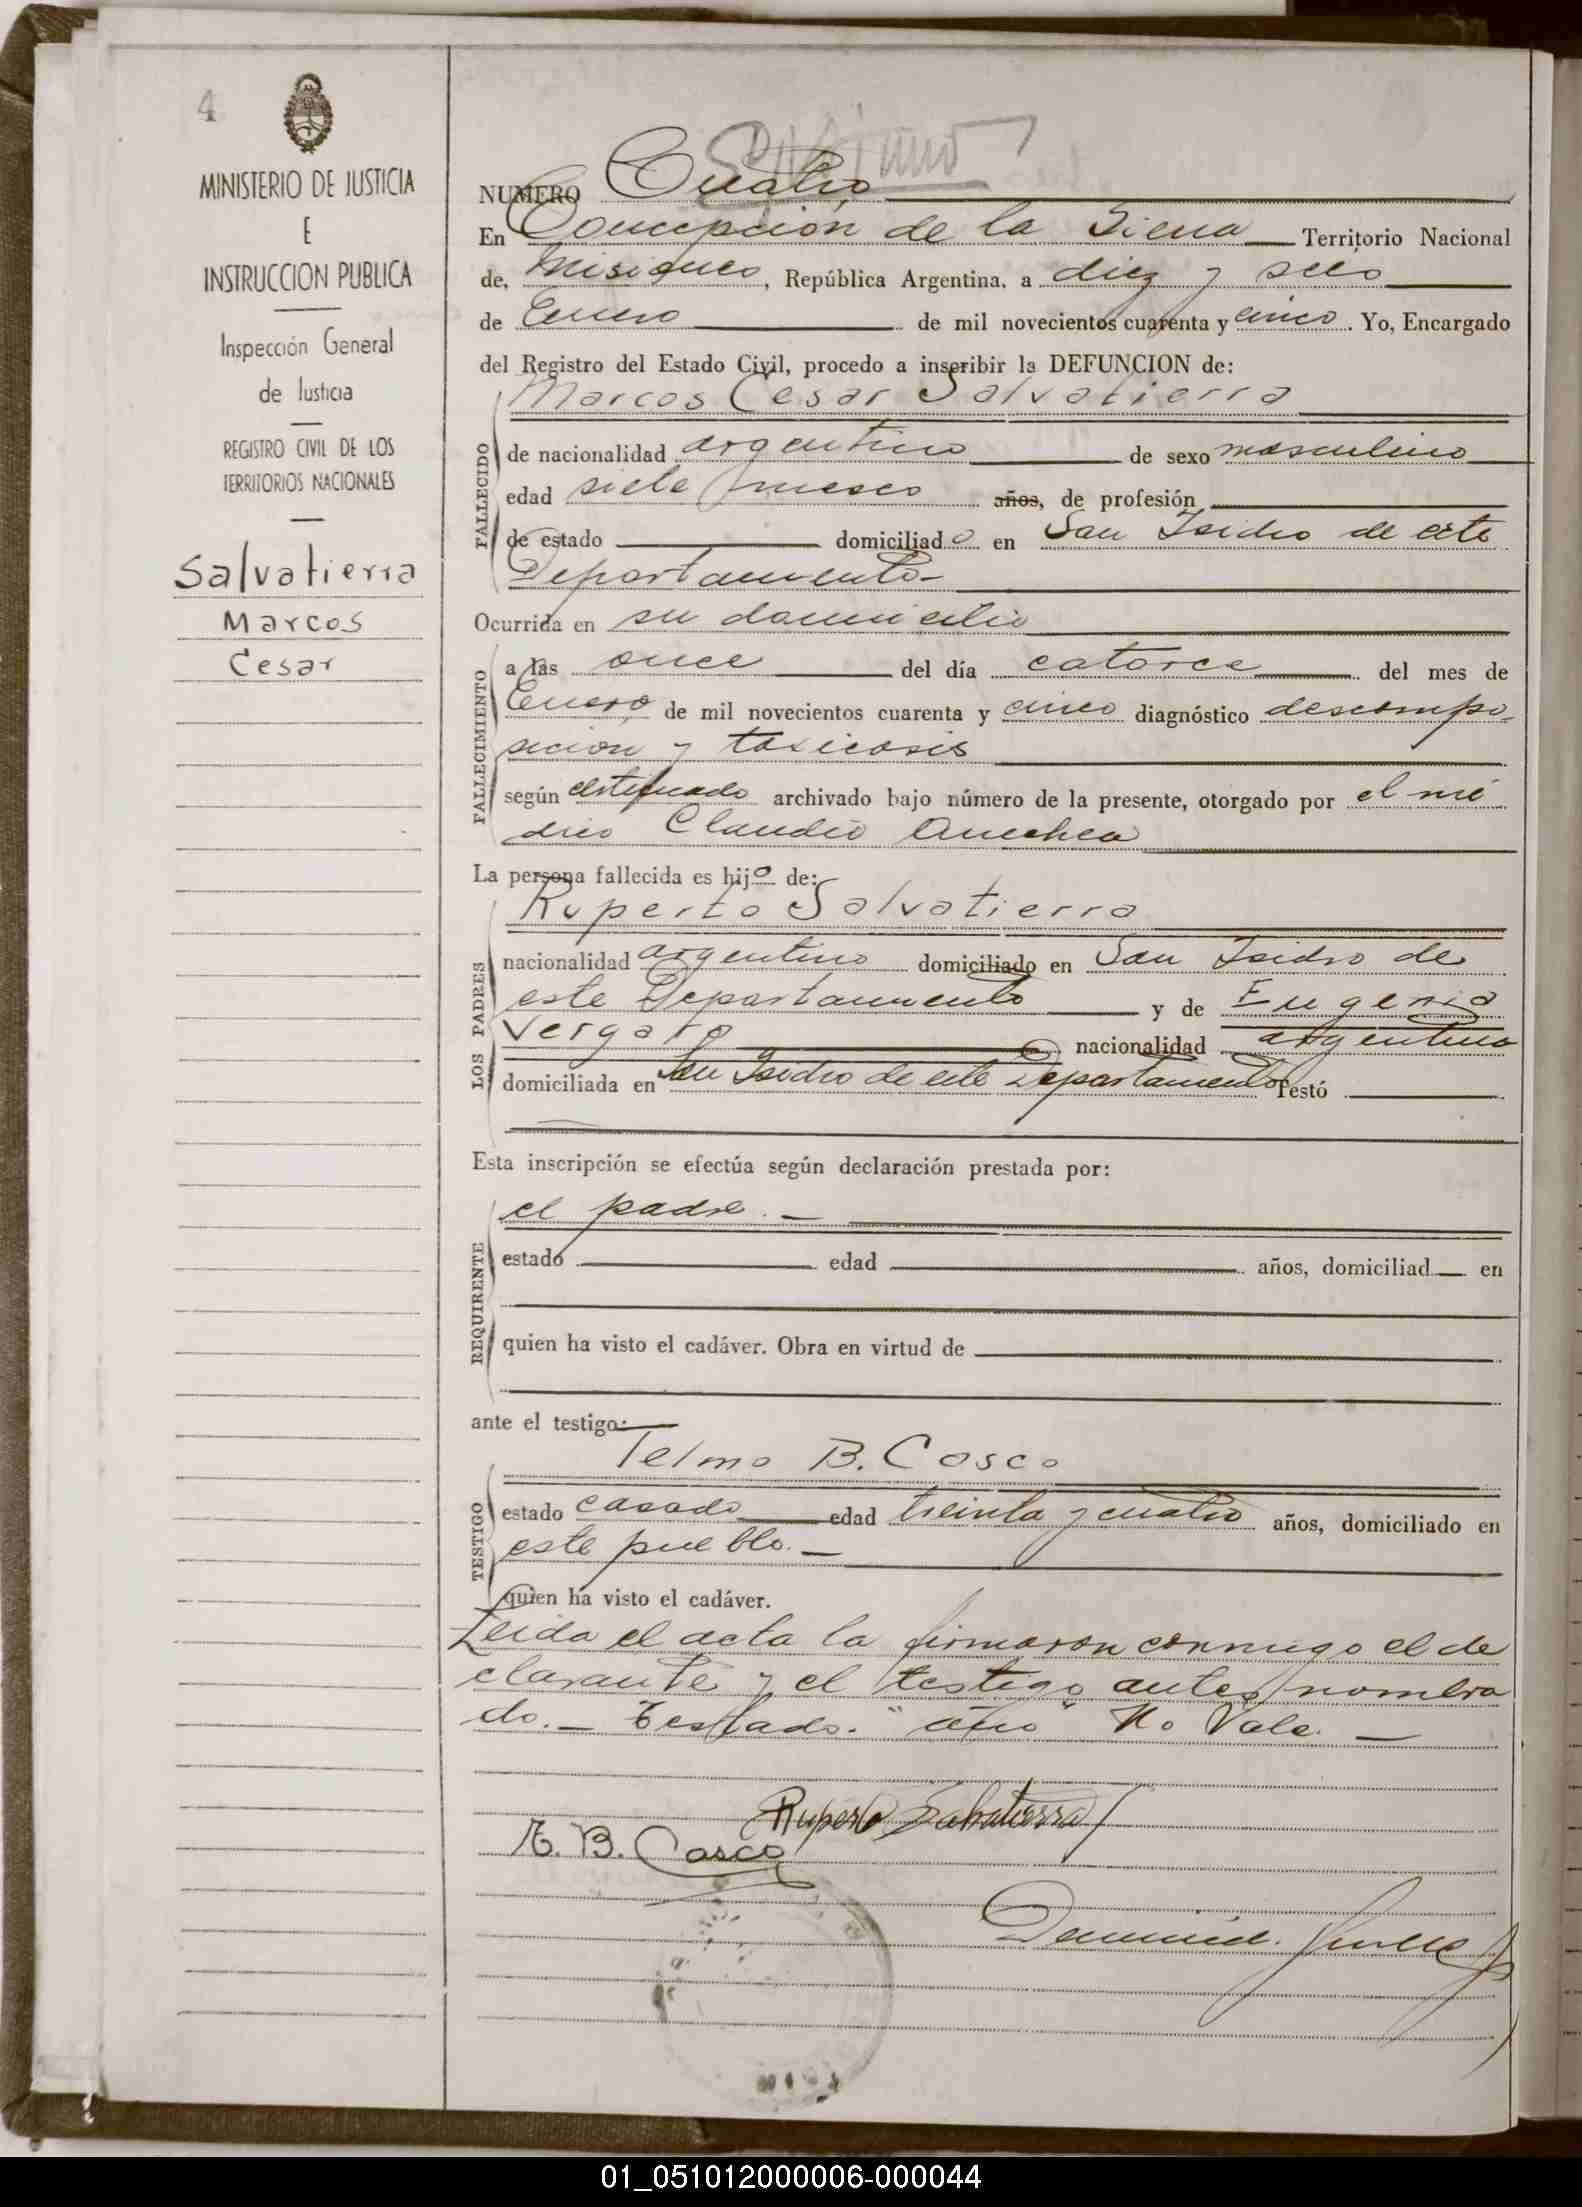 4
MINISTERIO DE JUSTICIA
E
INSTRUCCION PUBLICA
Inspección General
de Justicia
REGISTRO CIVIL DE LOS
TERRITORIOS NACIONALES
Salvatierra
Marcos
Cesar
NUMERO Cuatro
En Concepción de la Sierra Territorio Nacional
de, Misiones, República Argentina, a diez y seis
de Enero de mil novecientos cuarenta y cinco. Yo, Encargado
del Registro del Estado Civil, procedo a inscribir la DEFUNCION de:
Marcos Cesar Salvatierra
FALLECIDO
de nacionalidad argentino de sexo masculino
edad siete meses años, de profesión
de estado domiciliado en San Isidro de este
Departamento-
Ocurrida en su domicilio
FALLECIMIENTO
a las once del día catorce del mes de
Enero de mil novecientos cuarenta y cinco diagnóstico descompo-
sición y toxicosis
según certificado archivado bajo número de la presente, otorgado por el mé
dico Claudio
La persona fallecida es hijo de:
Ruperto Salvatierra
LOS PADRES
nacionalidad argentino domiciliado en San Isidro de
este Departamento y de Eugenia
Vergara nacionalidad argentina
domiciliada en San Isidro de este Departamento Testó
Esta inscripción se efectúa según declaración prestada por:
el padre.-
REQUIRENTE
estado edad años, domiciliad en
quien ha visto el cadáver. Obra en virtud de
ante el testigo:
Telmo B. Cosco
TESTIGO
estado casado edad treinta y cuatro años, domiciliado en
este pueblo.-
quien ha visto el cadáver.
Leida el acta la firmaron conmigo el de
clarante y el testigo antes nombra
do.- Testado. "año" No Vale.-
Ruperto Salvatierra
T. B. Cosco
01_051012000006-000044